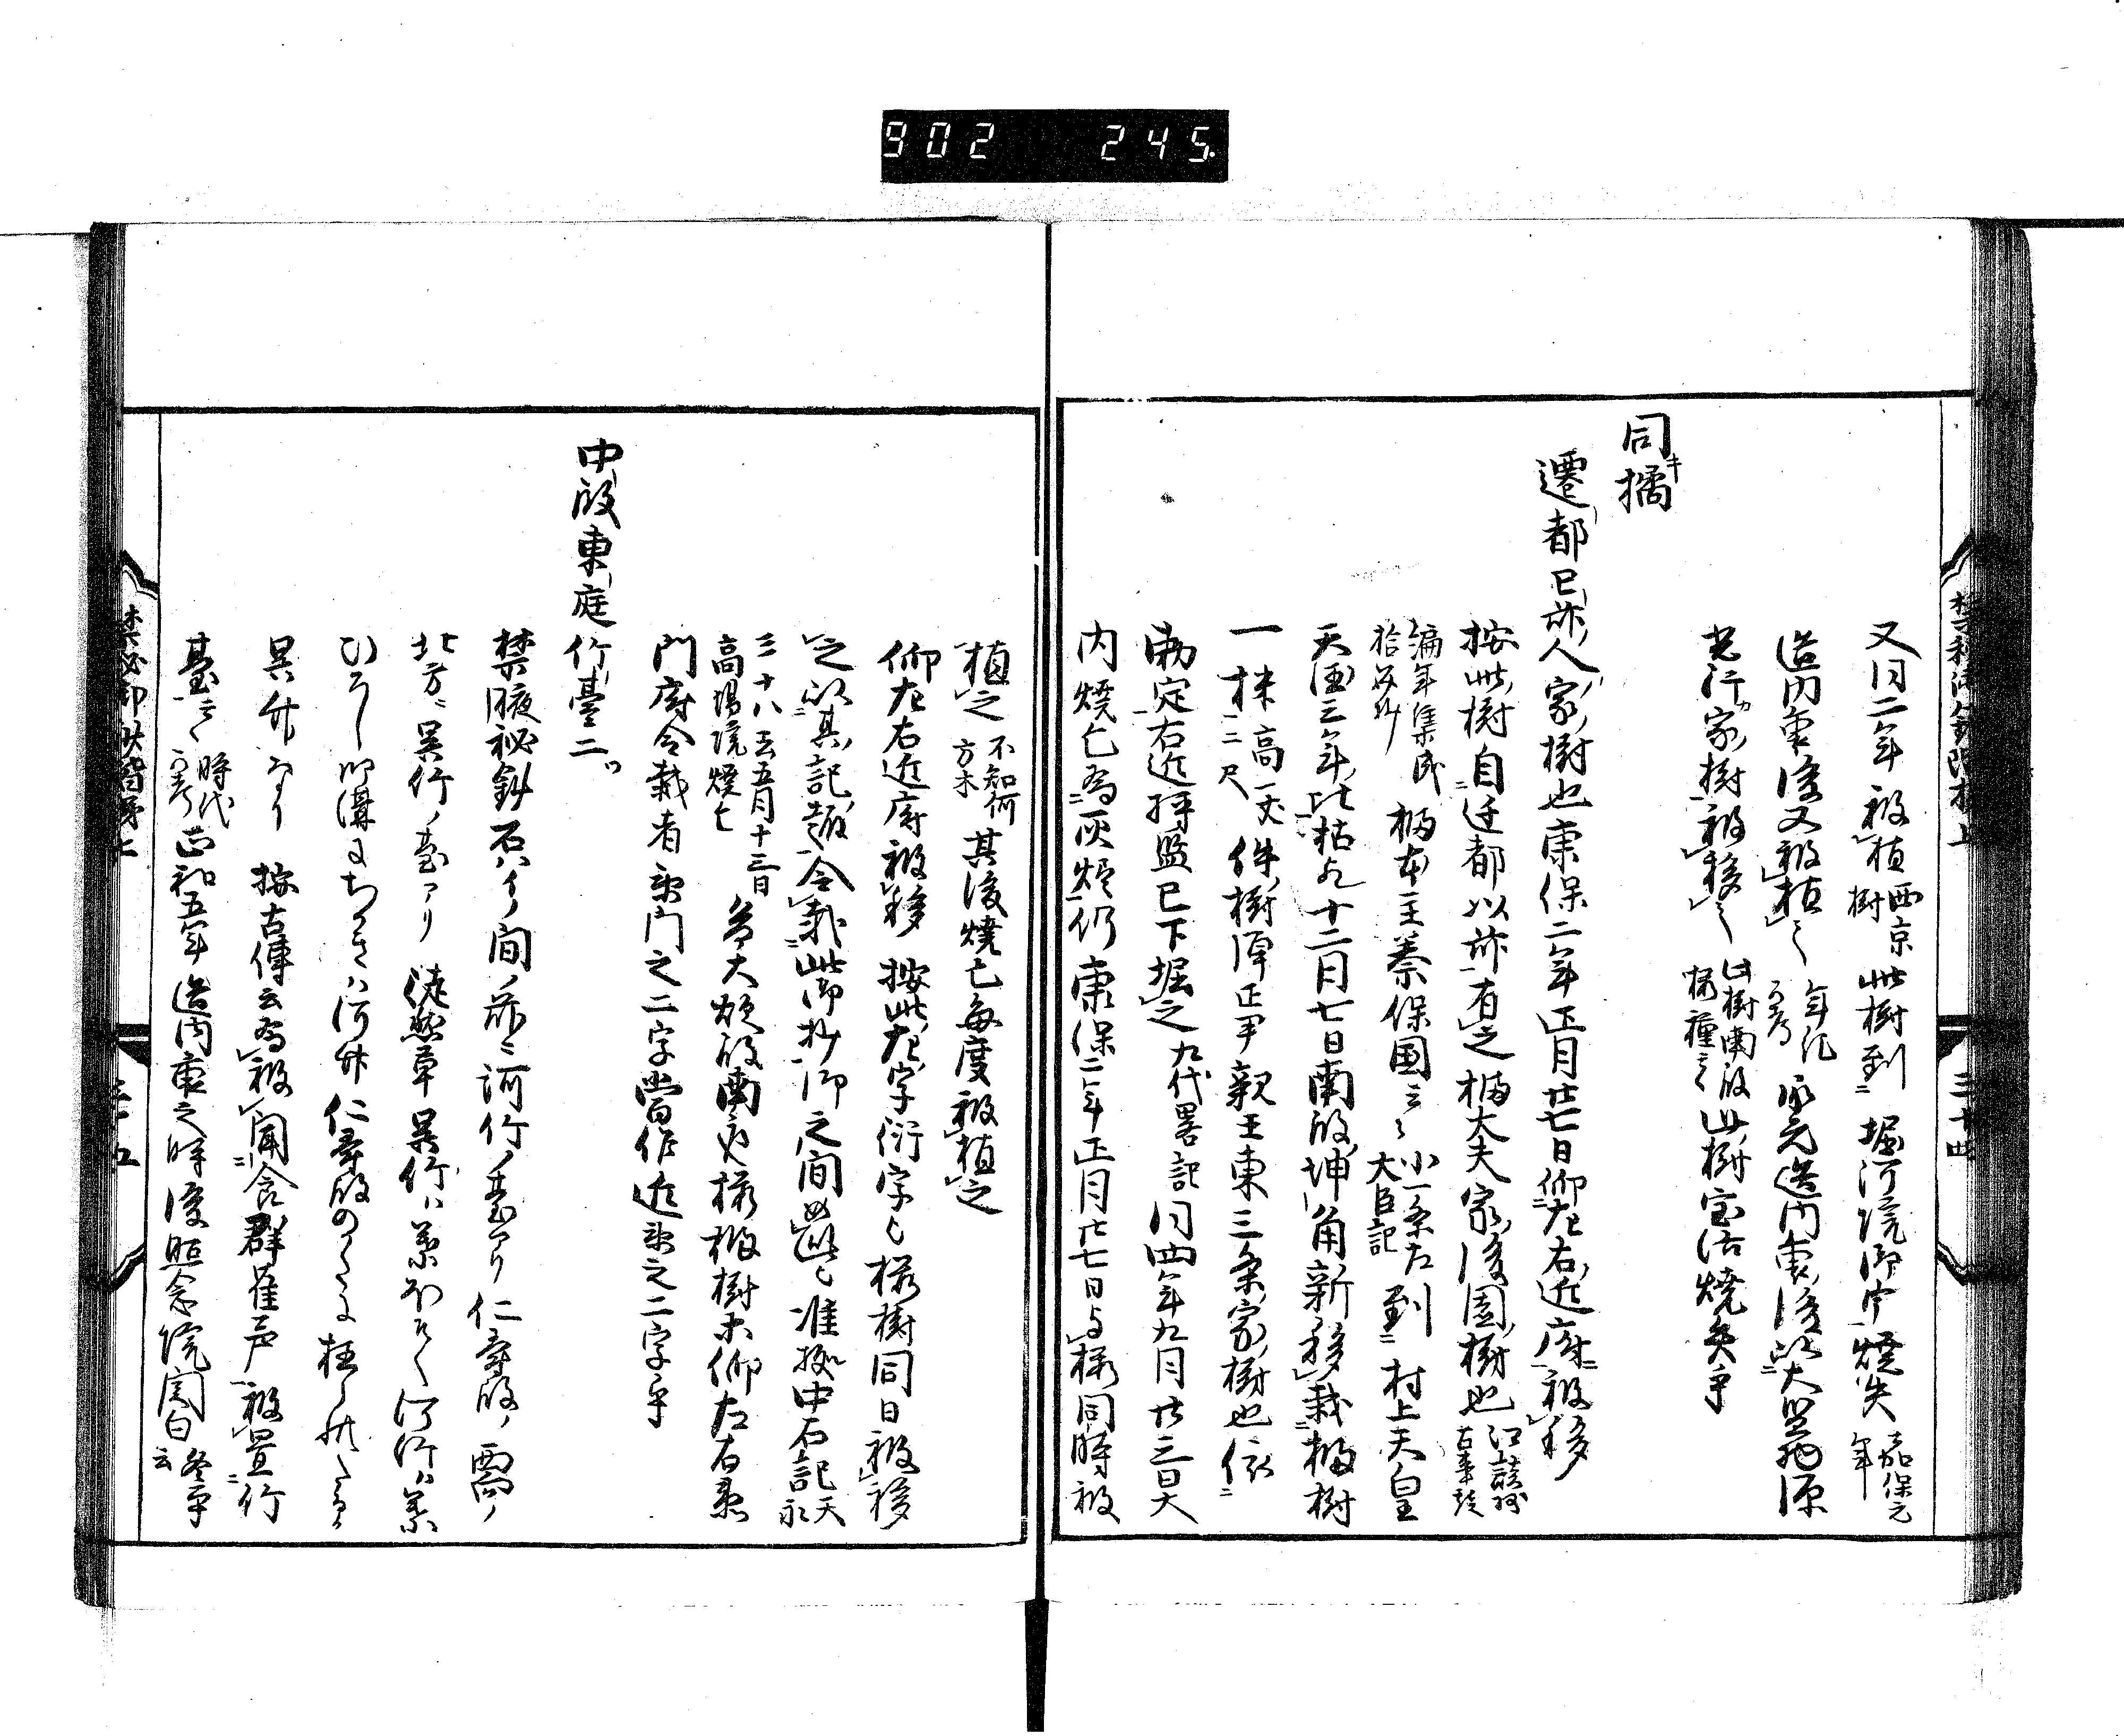 902 245.
又同二年被植西京樹此樹到堀河院御宇焼失嘉保元年
造内裏後又被植之年記可考承元造内裏後以大監物源
光行家樹被移之此樹南殿桜種云々此樹宝治焼失乎
同橘キ
遷都已前人家樹也康保二年正月廿七日仰左右近府被移
按此樹自迁都以前有之橘大夫家後園樹也江談抄古事談
編年集成拾芥抄橘本主秦保国云々小一条左大臣記到村上天皇
天徳三年比枯凡十二月七日南殿坤角新移栽橘樹
一株高一丈二尺件樹弾正尹親王東三条家樹也依
勅定右近将監已下堀之九代畧記同四年九月廿三日大
内焼亡為灰燼仍康保二年正月廿七日与桜同時被
植之不知何方木其後焼亡毎度被植之
仰左右近府被移按此左字衍字也桜樹同日被移
之以其記趣令載此御抄御之間如此也准拠中右記天永
三十八云五月十三日高陽院焼亡并大炊殿南殿桜橘樹木仰左右衛
門府令栽者衛門之二字当作近衛之二字乎
中殿東庭竹臺二ツ
禁腋祕鈔石ハイノ間ノ前ニ河竹ノ臺アリ仁寿殿ノ西向ノ
北方ニ呉竹ノ臺アリ徒然草呉竹ハ葉ホソク河竹ハ葉
ひろし御溝にちかきハ河竹仁寿殿のかたによりて植られたるは
呉竹なり按古傳云為被聞食群雀声被置竹
臺云々時代可考正和五年造内裏之時後照念院関白冬平云
三十四